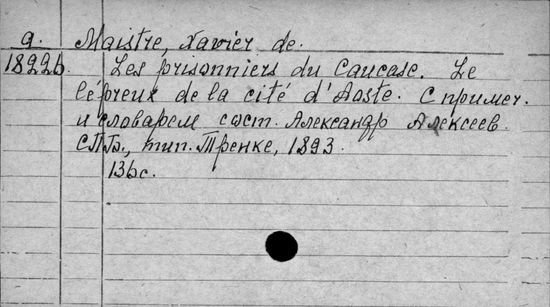 g. Maistre, Xavier de.
18226. Les prisonniers du Caucase. Le
lépreux de la cité d'Aoste. С примеч.
и словарем сост. Александр Алексеев.
СПБ., тип. Тренке, 1893.
136с.